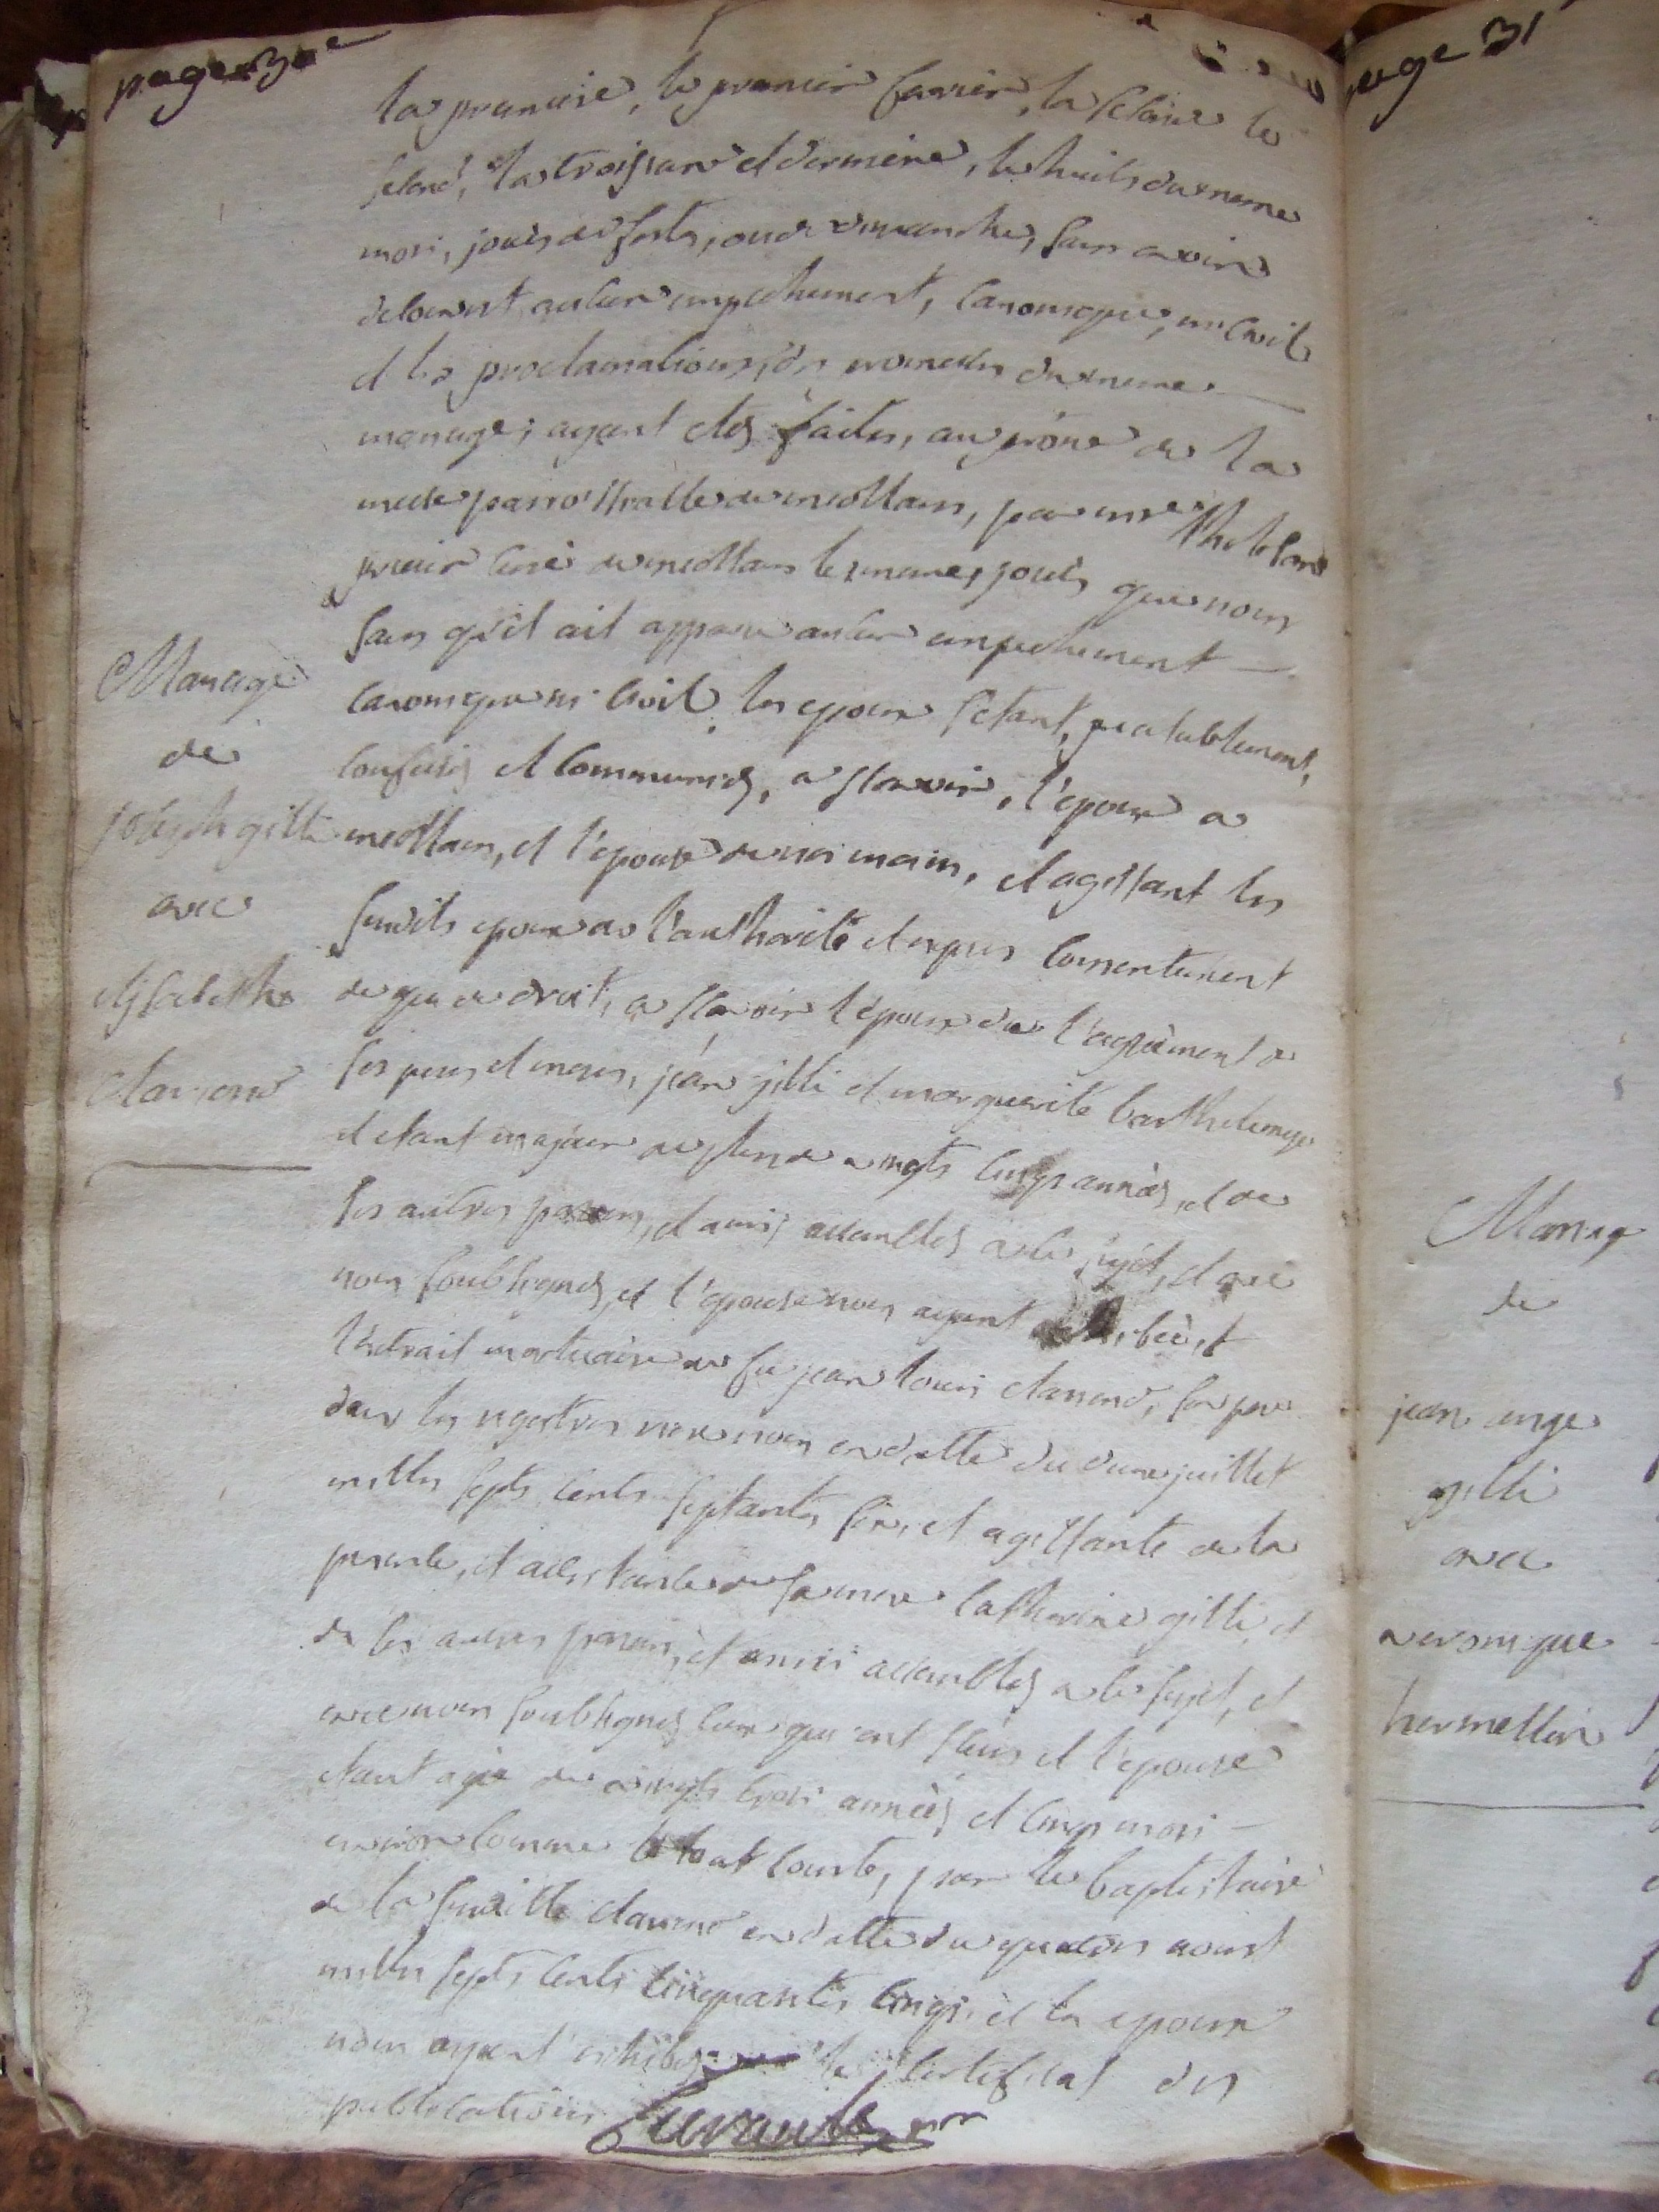 page 30e
la premiere, le premier fevrier, la seconde le
second, la troisieme et derniere, le huits du meme
mois, jours de festes, ou de dimanches, sans avoir
decouvert aucun empechement, canonique, ni civil
et les proclamations, des promesses du meme
mariage, ayant etes faites, au prône de la
messe parroissialle de meollans, par mre
prieur curé de meollans les memes jours que nous
sans qu'il ait apparu aucun empechement
canonique ni civil, les epoux s'etant, prealablement,
confessés et communiés, a sçavoir, l'epoux a
meollans, et l'epouse de nos mains, et agissant les
susdits epoux de l'authorité et expres consentement
de qui de droit, a sçavoir l'epoux de l'agrèment de
ses peres et meres, jean gilli et marguerite barthelemy
et etant majeur de plus de vingts cinqs années, et de
ses autres parens, et amis assemblés a ce sujet, et avec
nous soubsignés, et l'epouse nous ayant
l'extrait mortuaire de feu jean louis clariond, son pere
dans les registres riere nous en datte du juillet
milles septs cents septantes six, et agissante de la
presence, et assistance de sa mere Catherine gilli, et
de ses autres parens, et amis assemblés a ce sujet, et
avec nous soubsignés ceux qui ont sceus et l'epouse
etant agée de vingts trois années et cinqs mois
environ comme le tout conste, par le baptistaire
de la susditte clariond en datte du quatre aoust
milles septs cents cinquantes cinqs, et les epoux
nous ayant exhibés le certificat des
publications
Mariage
de
joseph gilli
avec
elisabeth
clariond
page 31
Mariag
de
jean ange
gilli
avec
veronique
hermellin